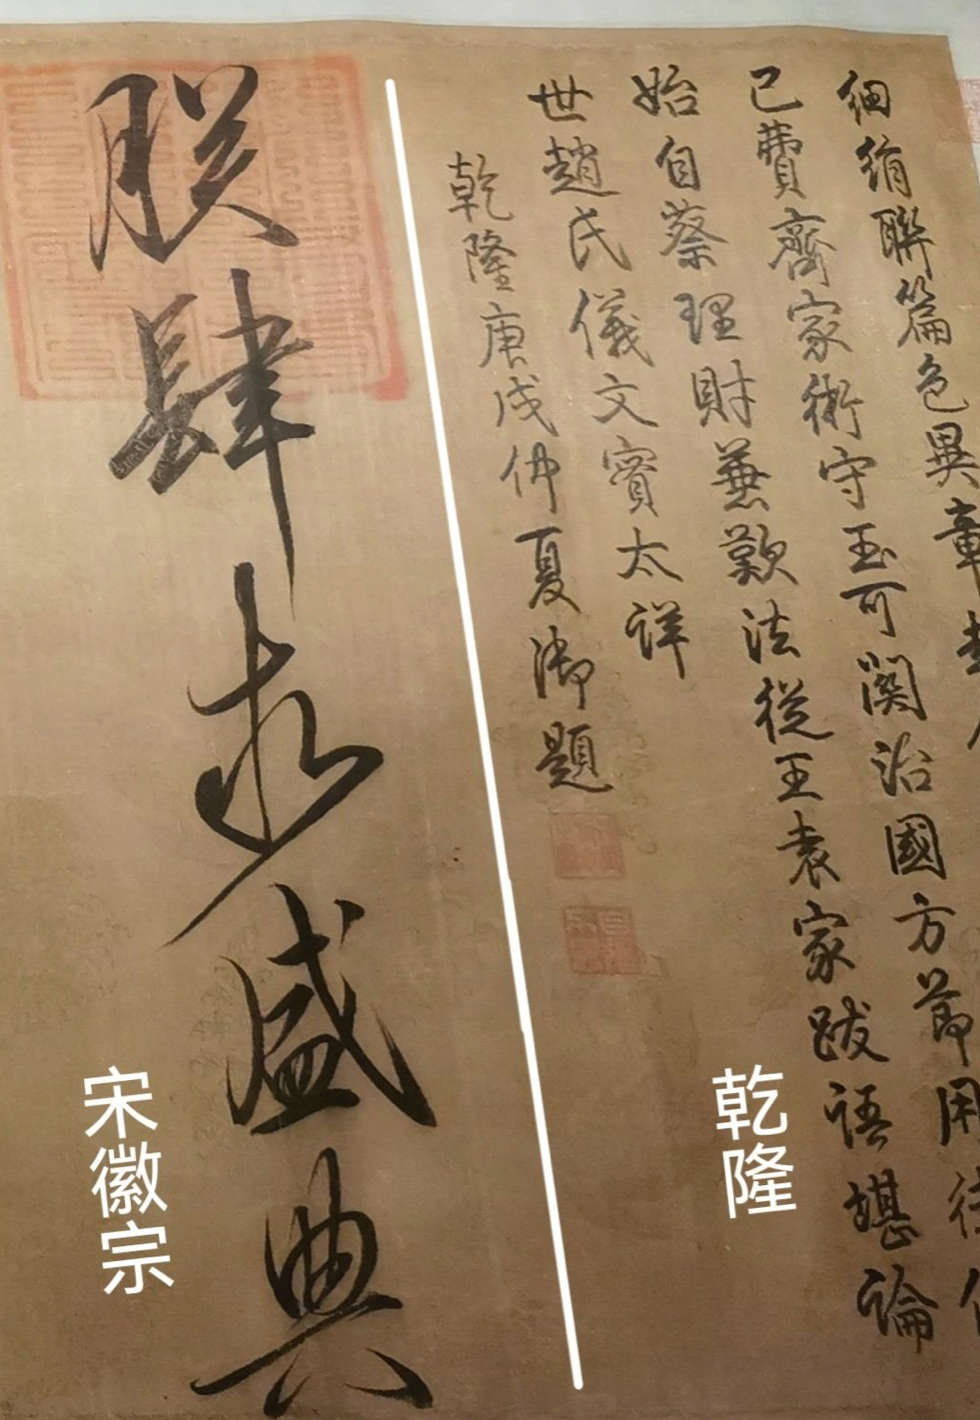 細絹聯篇色異章
已費齊家術守玉可關治國方節用
始自蔡理財兼歎法從王袁家跋語堪論
世趙氏儀文實太詳
乾隆庚戌仲夏御題
朕肆求盛典
乾隆
宋徽宗